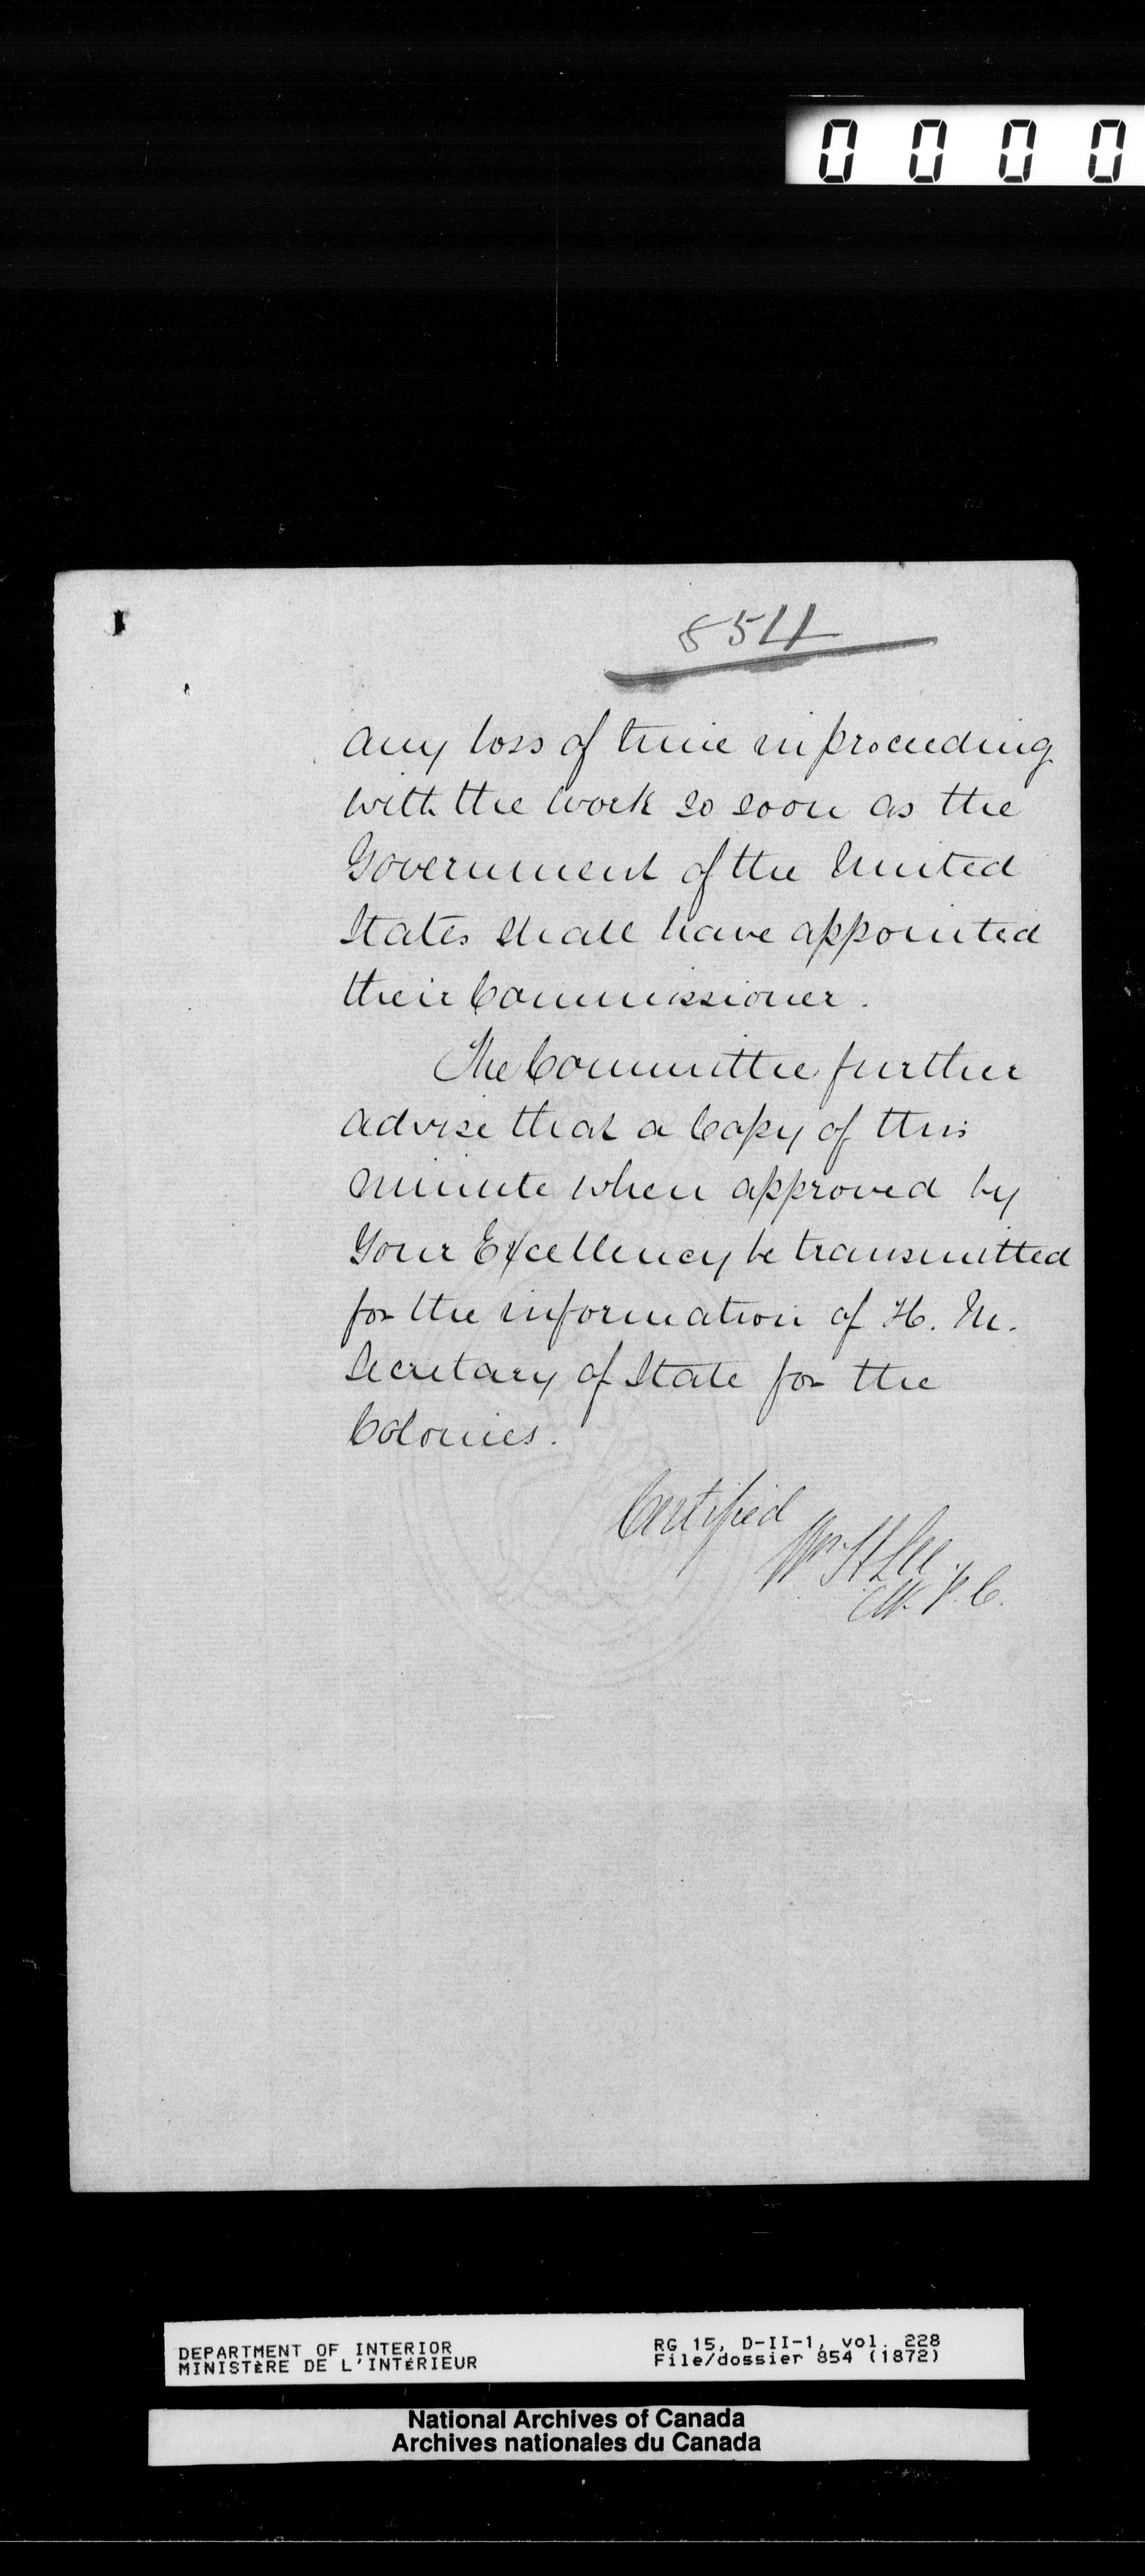 0 0 0 0
854
any loss of time in proceeding
with the work so soon as the
Government of the United
States shall have appointed
their Commissioner.
The Committee further
advise that a Copy of this
minute when approved by
Your Excellency be transmitted
for the information of H. M.
Secretary of State for the
Colonies.
Certified
Wm H Lee
Clk. P. C.
DEPARTMENT OF INTERIOR
MINISTÈRE DE L'INTÉRIEUR
RG 15, D-II-1, vol. 228
File/dossier 854 (1872)
National Archives of Canada
Archives nationales du Canada